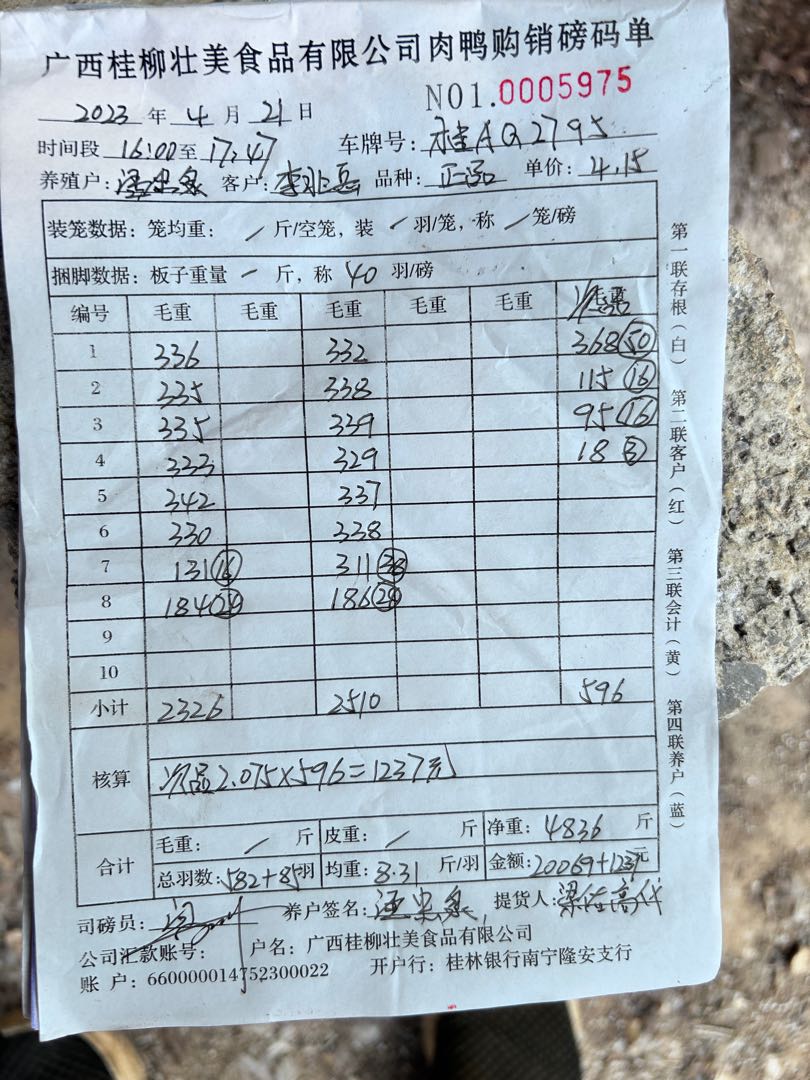 广西桂柳壮美食品有限公司肉鸭购销磅码单
NO1.0005975
2023 年 4 月 21 日
时间段 16:00 至 17:47 车牌号: 桂AQ2795
养殖户: 客户: 品种: 单价: 4.15
装笼数据: 笼均重: / 斤/空笼, 装 / 羽/笼, 称 / 笼/磅
捆脚数据: 板子重量 / 斤, 称 40 羽/磅
编号 毛重 毛重 毛重 毛重 毛重
1 336 332 368 50
2 335 338 115 16
3 335 339 95 16
4 333 329 18 3
5 342 337
6 330 338
7 131 16 311 38
8 184 24 186 24
9
10
小计 2326 2510 596
核算 次品2.075×596=1237元
合计 毛重: / 斤 皮重: / 斤 净重: 4836 斤
总羽数: 582+85 羽 均重: 8.31 斤/羽 金额: 20069+1237 元
司磅员: 养户签名: 提货人:
公司汇款账号: 户名: 广西桂柳壮美食品有限公司
账 户: 660000014752300022 开户行: 桂林银行南宁隆安支行
第一联存根(白) 第二联客户(红) 第三联会计(黄) 第四联养户(蓝)